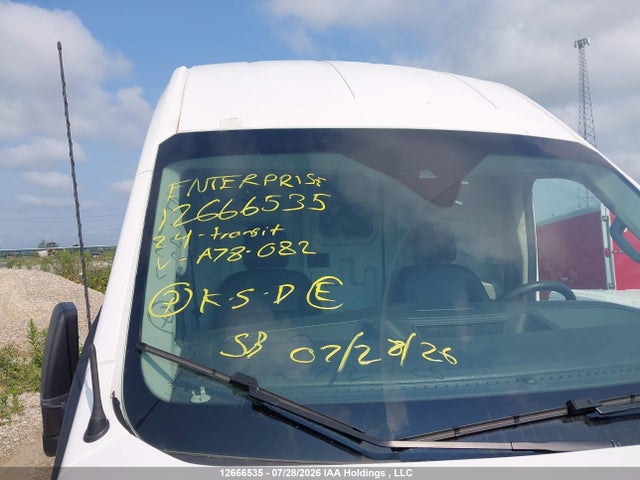 ENTERPRISE
12666535
24-transit
V-A78-082
K-S-D E
SB 07/28/26
12666535 - 07/28/2026 IAA Holdings , LLC